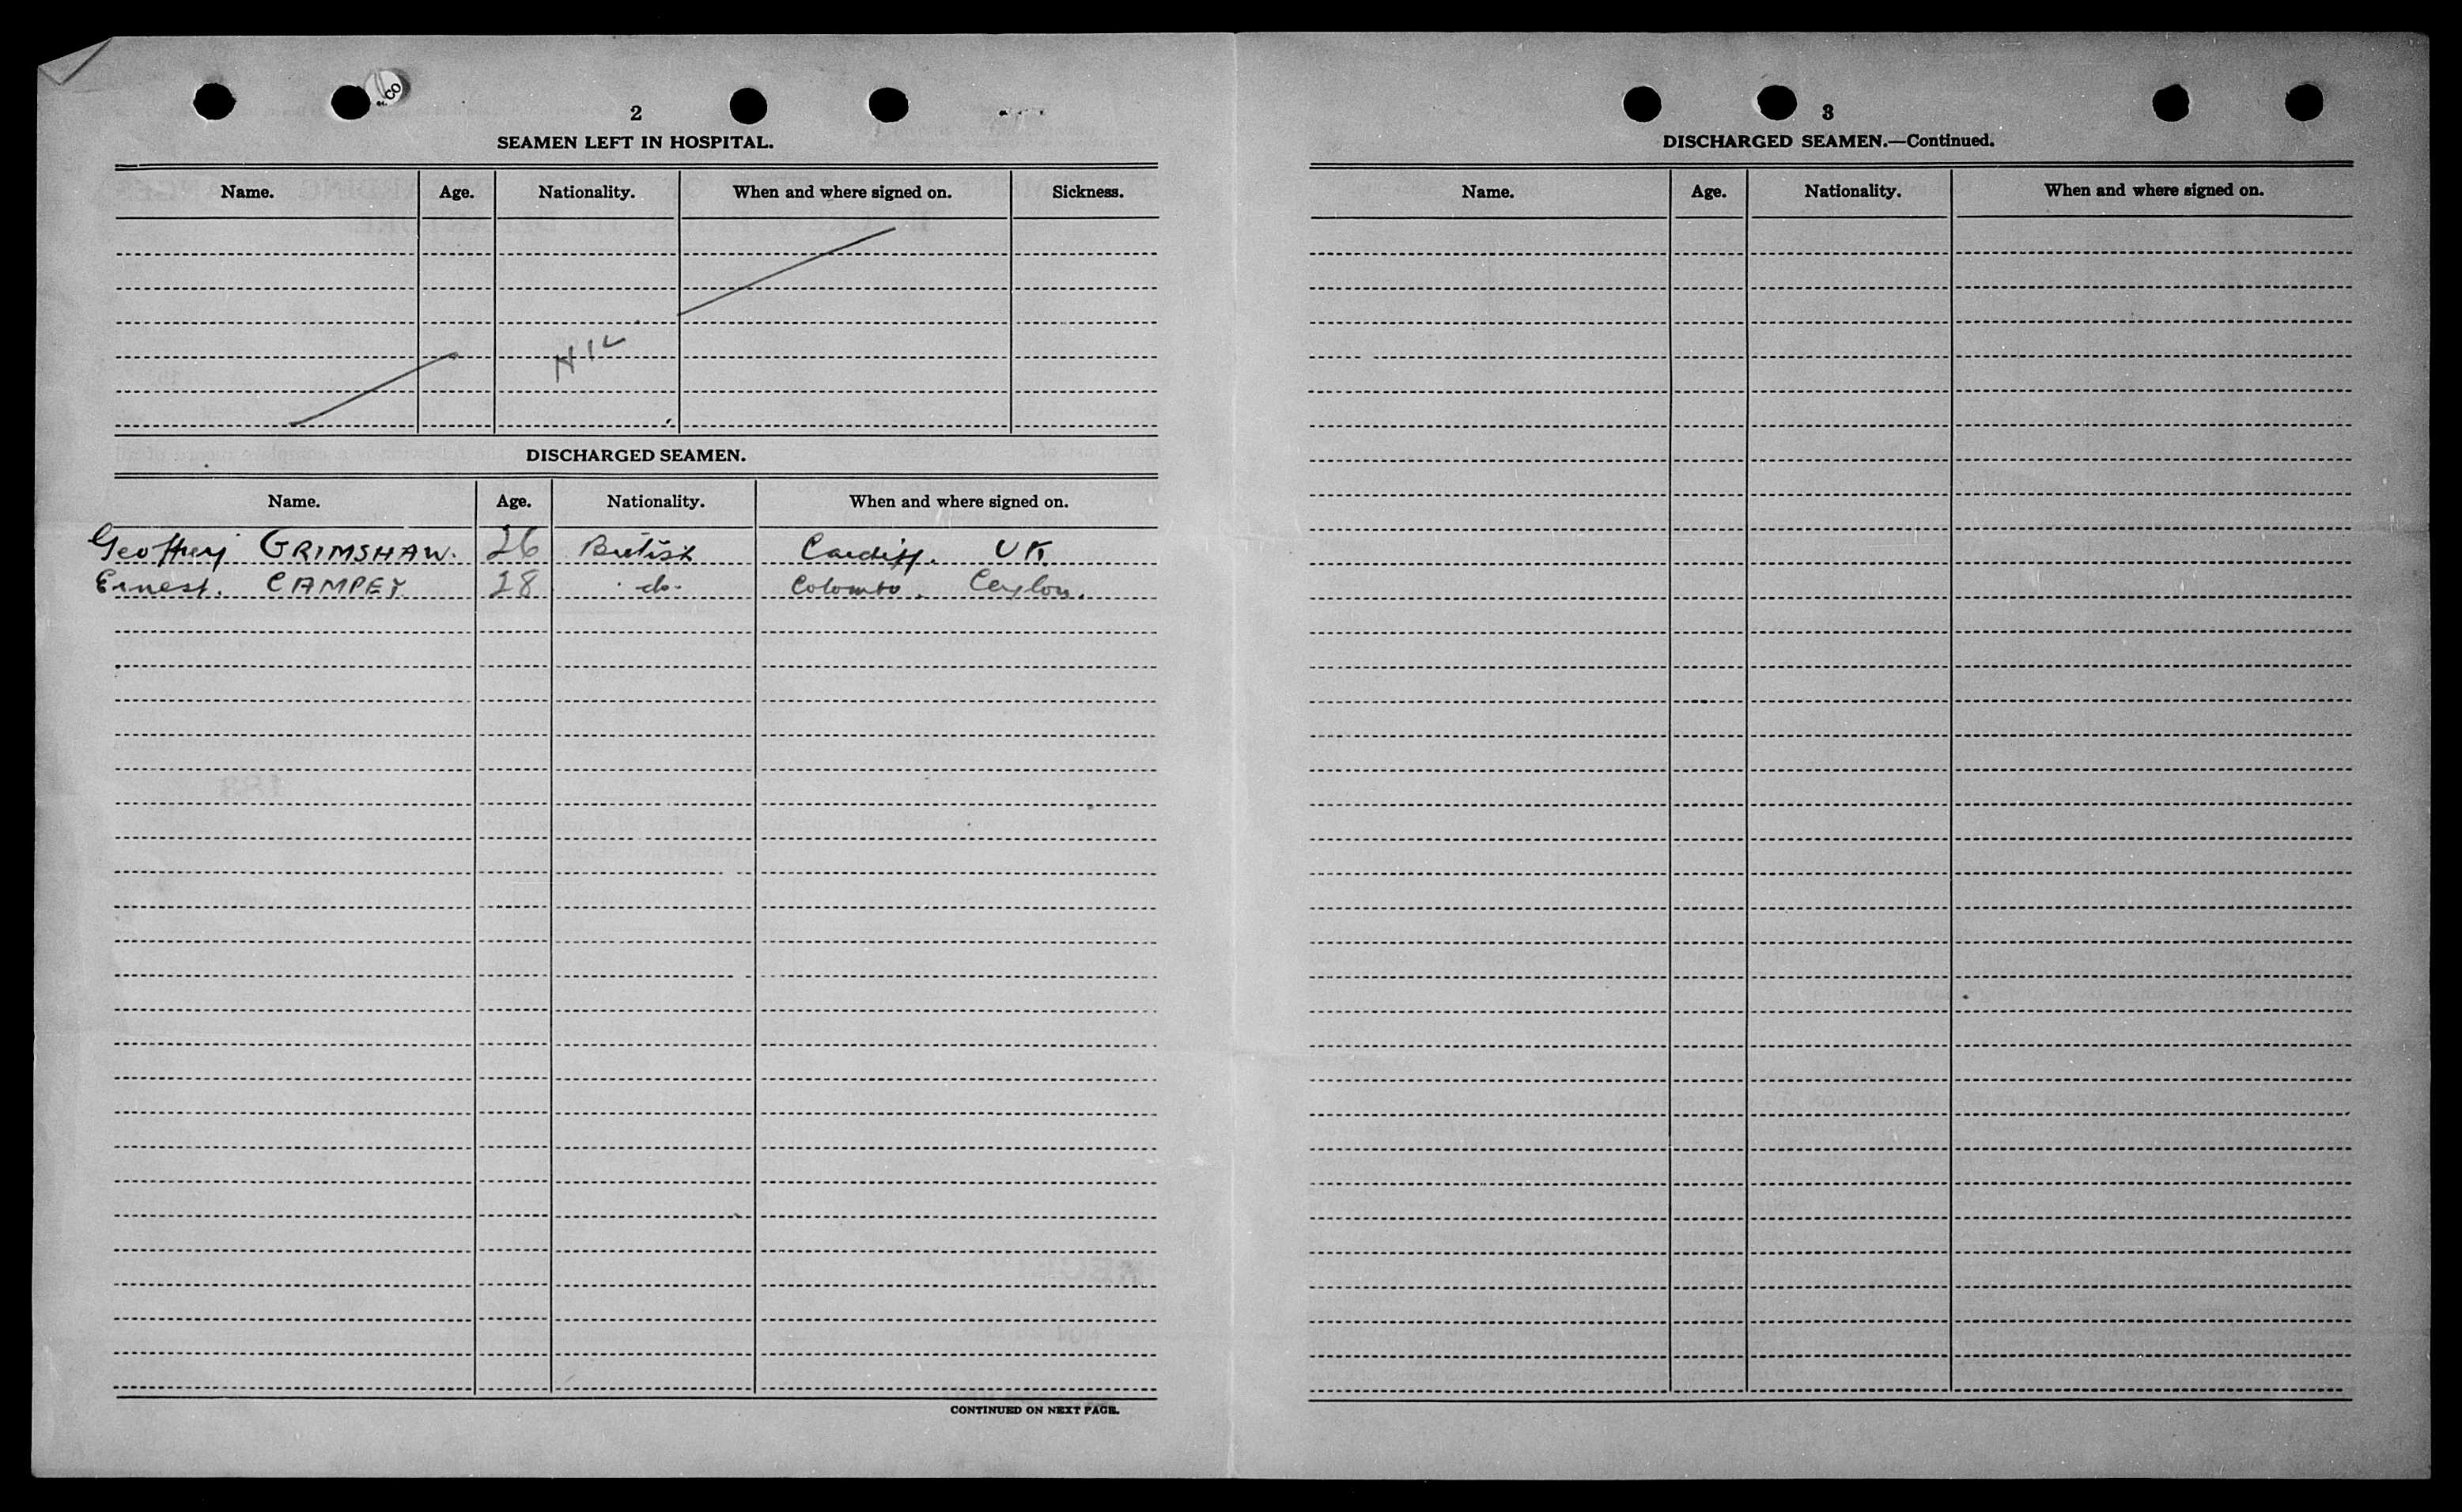 2
SEAMEN LEFT IN HOSPITAL.
Name. Age. Nationality. When and where signed on. Sickness.
NIL
DISCHARGED SEAMEN.
Name. Age. Nationality. When and where signed on.
Geoffrey GRIMSHAW. 26 British Cardiff. UK.
Ernest. CAMPEY 28 -do- Colombo. Ceylon.
CONTINUED ON NEXT PAGE.
3
DISCHARGED SEAMEN.—Continued.
Name. Age. Nationality. When and where signed on.